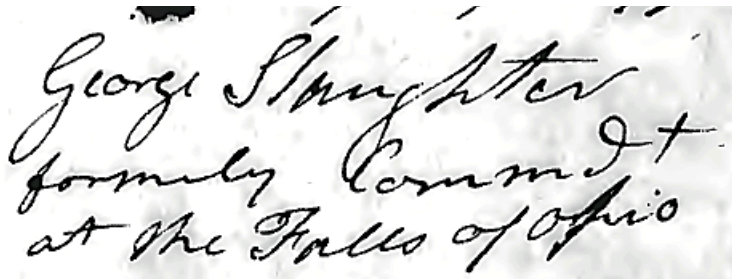 George Slaughter
formerly Commdt
at the Falls of Ohio